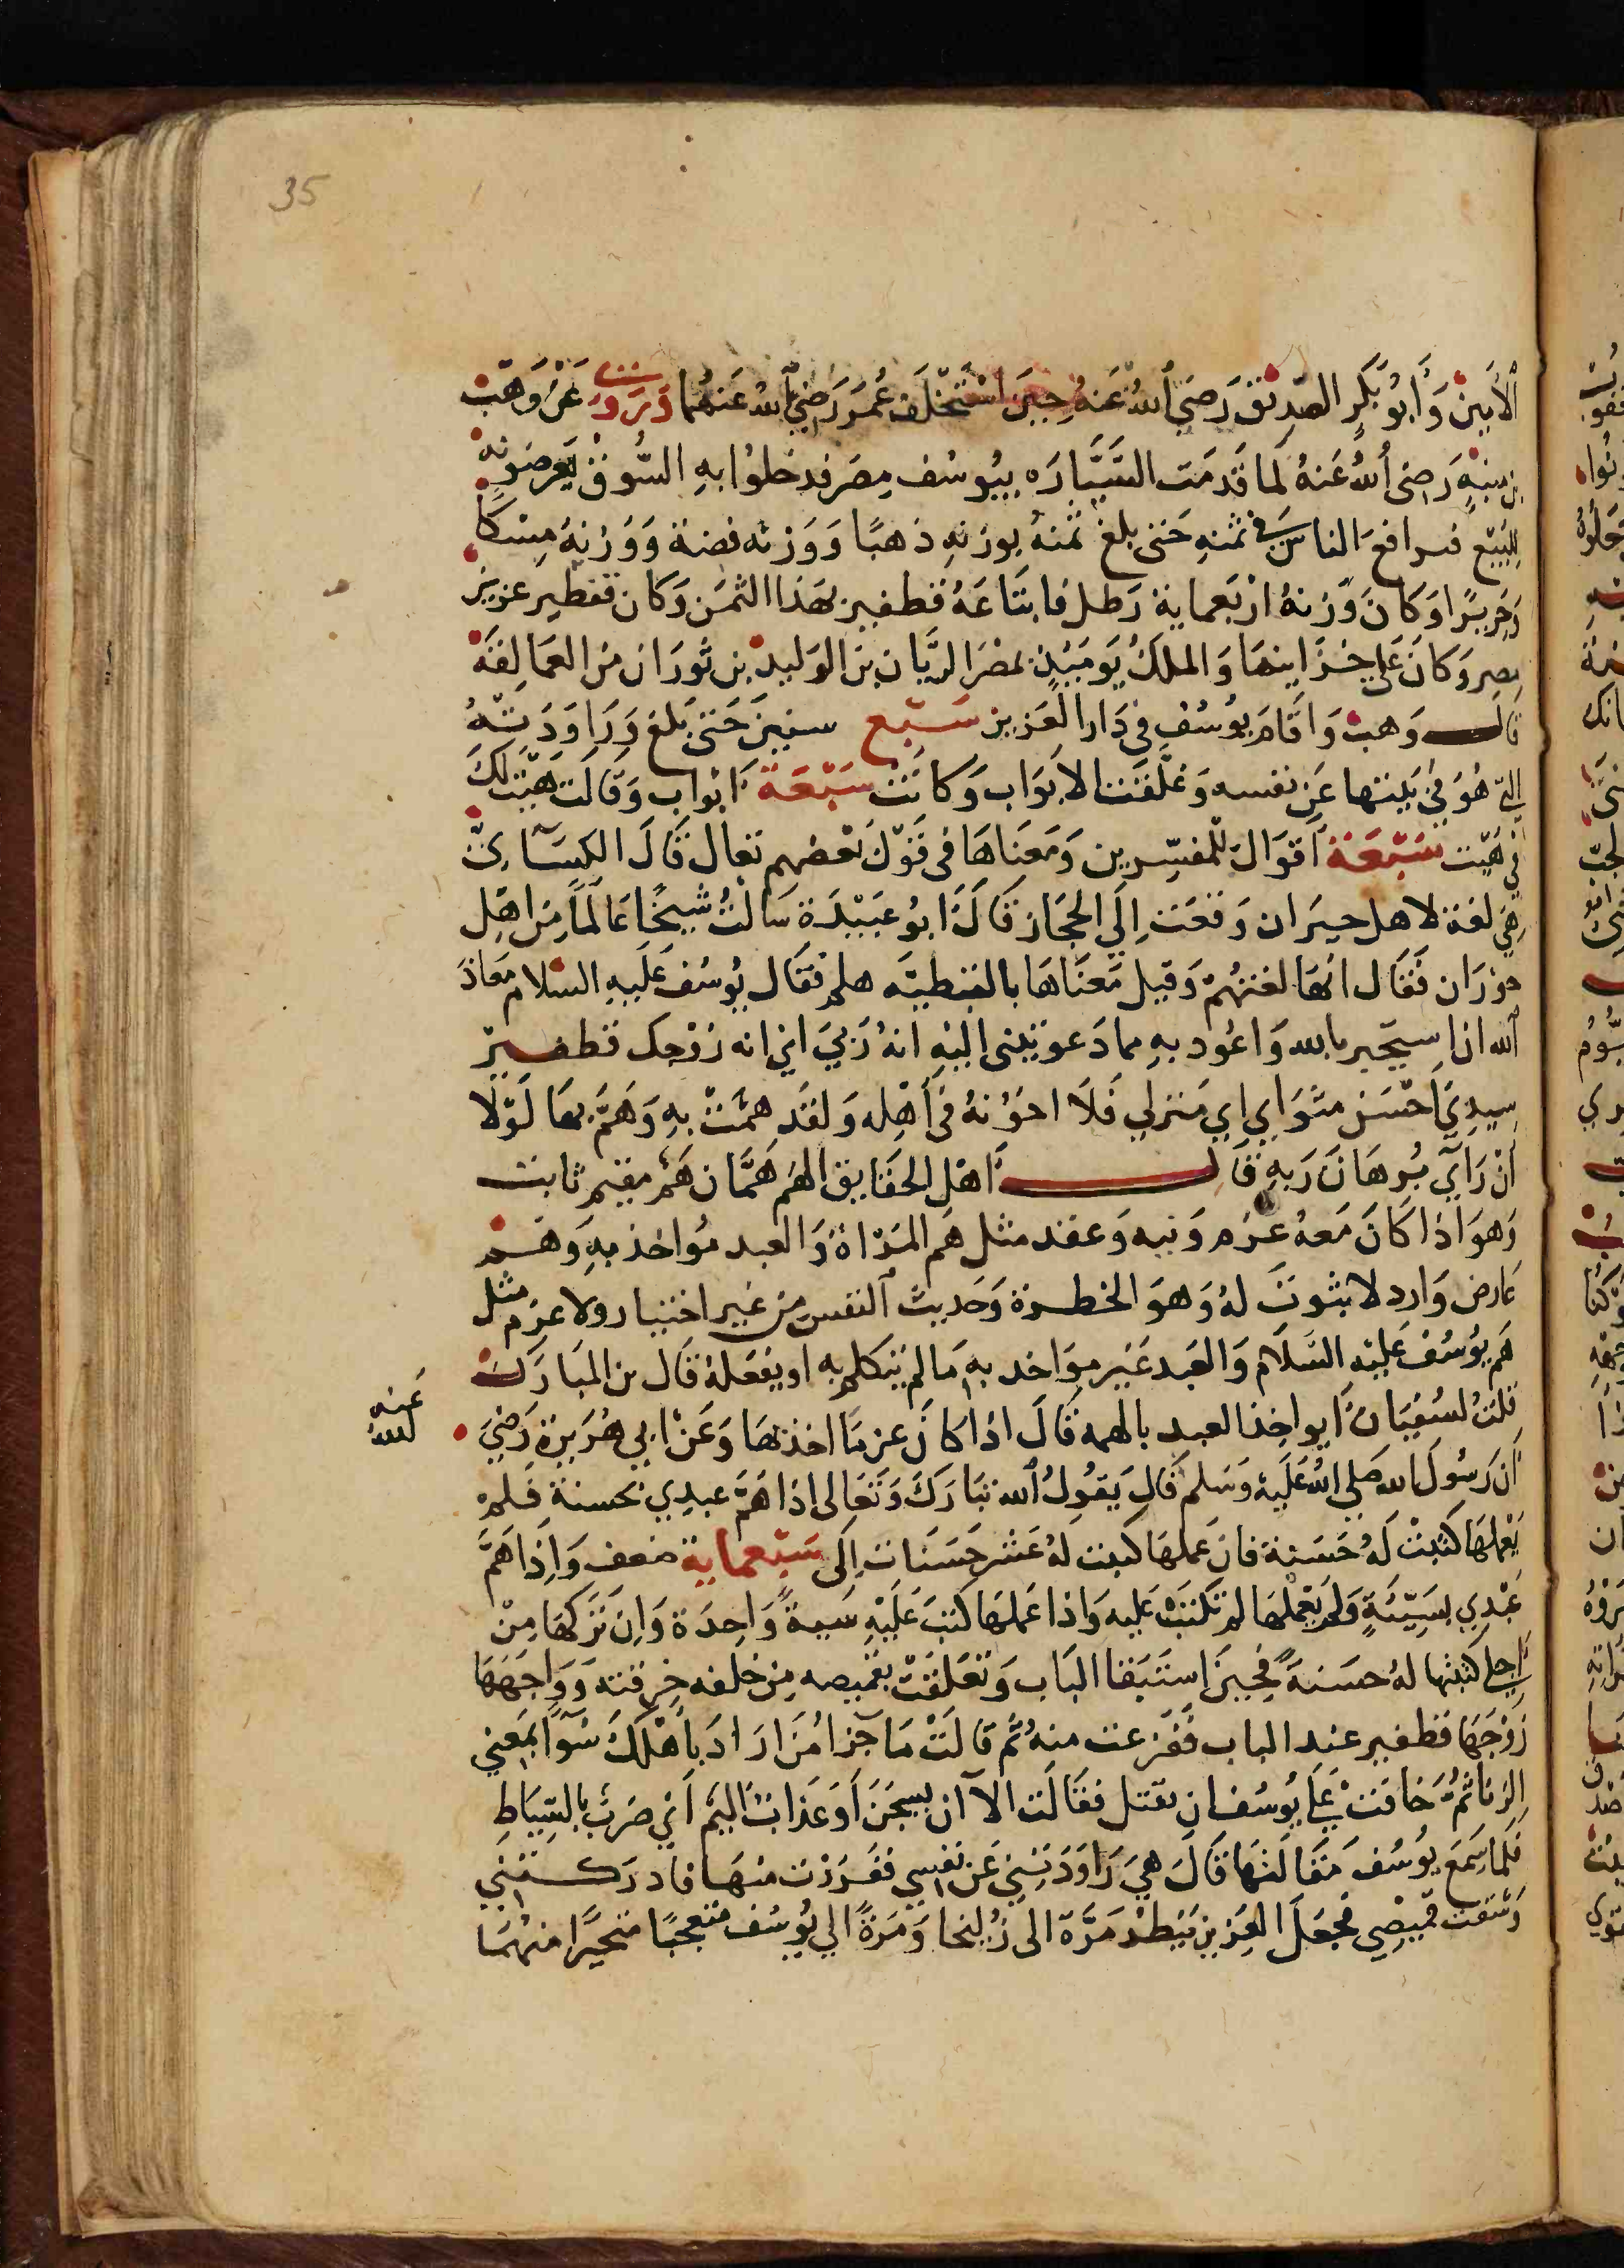 35
الأمين وأبو بكر الصديق رضي الله عنه حين استخلف عمر رضي الله عنهما وروي عن وهب
بن منبه رضي الله عنه لما قدمت السيارة بيوسف مصر فدخلوا به السوق يعرضونه
للبيع فترافع الناس في ثمنه حتى بلغ ثمنه بوزنه ذهبا ووزنه فضة ووزنه مسكا
وحريرا وكان وزنه اربعماية رطل فابتاعه قطفير بهذا الثمن وكان قفطير عزيز
مصر وكان على خزاينها والملك يوميذ بمصر الريان بن الوليد بن ثوران من العمالقة
قال وهب واقام يوسف في دار العزيز سبع سنين حتى بلغ وراودته
التي هو في بيتها عن نفسه وغلقت الابواب وكانت سبعة ابواب وقالت هيت لك
في هيت سبعة اقوال للمفسرين ومعناها في قول بعضهم تعال قال الكسائي
هي لغة لاهل حيران وقعت إلي الحجاز قال ابو عبيدة سالت شيخا عالما من اهل
حوران فقال انها لغتهم وقيل معناها بالقبطية هلم فقال يوسف عليه السلام معاذ
الله اذا استجير بالله واعود به مما دعوتيني اليه انه ربي اي انه زوجك قطفير
سيدي احسن مثواي اي منزلي فلا اخونه في أهله ولقد همت به وهم بها لولا
أن رآي برهان ربه قال أهل الحقايق الهم همان هم مقيم ثابت
وهو اذا كان معه عزم ونيه وعقد مثل هم المرأة والعبد مواخذ به وهم
عارض وارد لا ثبوت له وهو الخطرة وحديث النفس من غير اختيار ولا عزم مثل
هم يوسف عليه السلام والعبد غير مواخد به ما لم يتكلم به او يفعله قال بن المبارك
قلت لسفيان أيواخذ العبد بالهمه قال اذا كان عزما اخذ بها وعن ابي هريرة رضي
الله عنه
أن رسول الله صلي الله عليه وسلم قال يقول الله تبارك وتعالى إذا هم عبدي بحسنة فلم
يعملها كتبت له حسنة فان عملها كتبت له عشر حسنات إلى سبعماية ضعف وإذا هم
عبدي بسيئة ولم يعملها لم تكتب عليه واذا عملها كتب عليه سيئة واحدة وان تركها من
أجلي كتبتها له حسنة فحين استبقا الباب وتعلقت بقميصه من خلفه خرقته وواجهها
زوجها قطفير عند الباب ففزعت منه ثم قالت ما جزا من اراد باهلك سوآ بمعني
الزنا ثم خافت علي يوسف ان يقتل فقالت الا ان يسجن أو عذاب اليم أي ضرب بالسياط
فلما سمع يوسف مقالتها قال هي راودتني عن نفسي ففررت منها فادركتني
وشقت قميصي فجعل العزيز ينظر مرة الى زليخا ومرة الي يوسف متعجبا متحيرا منهما